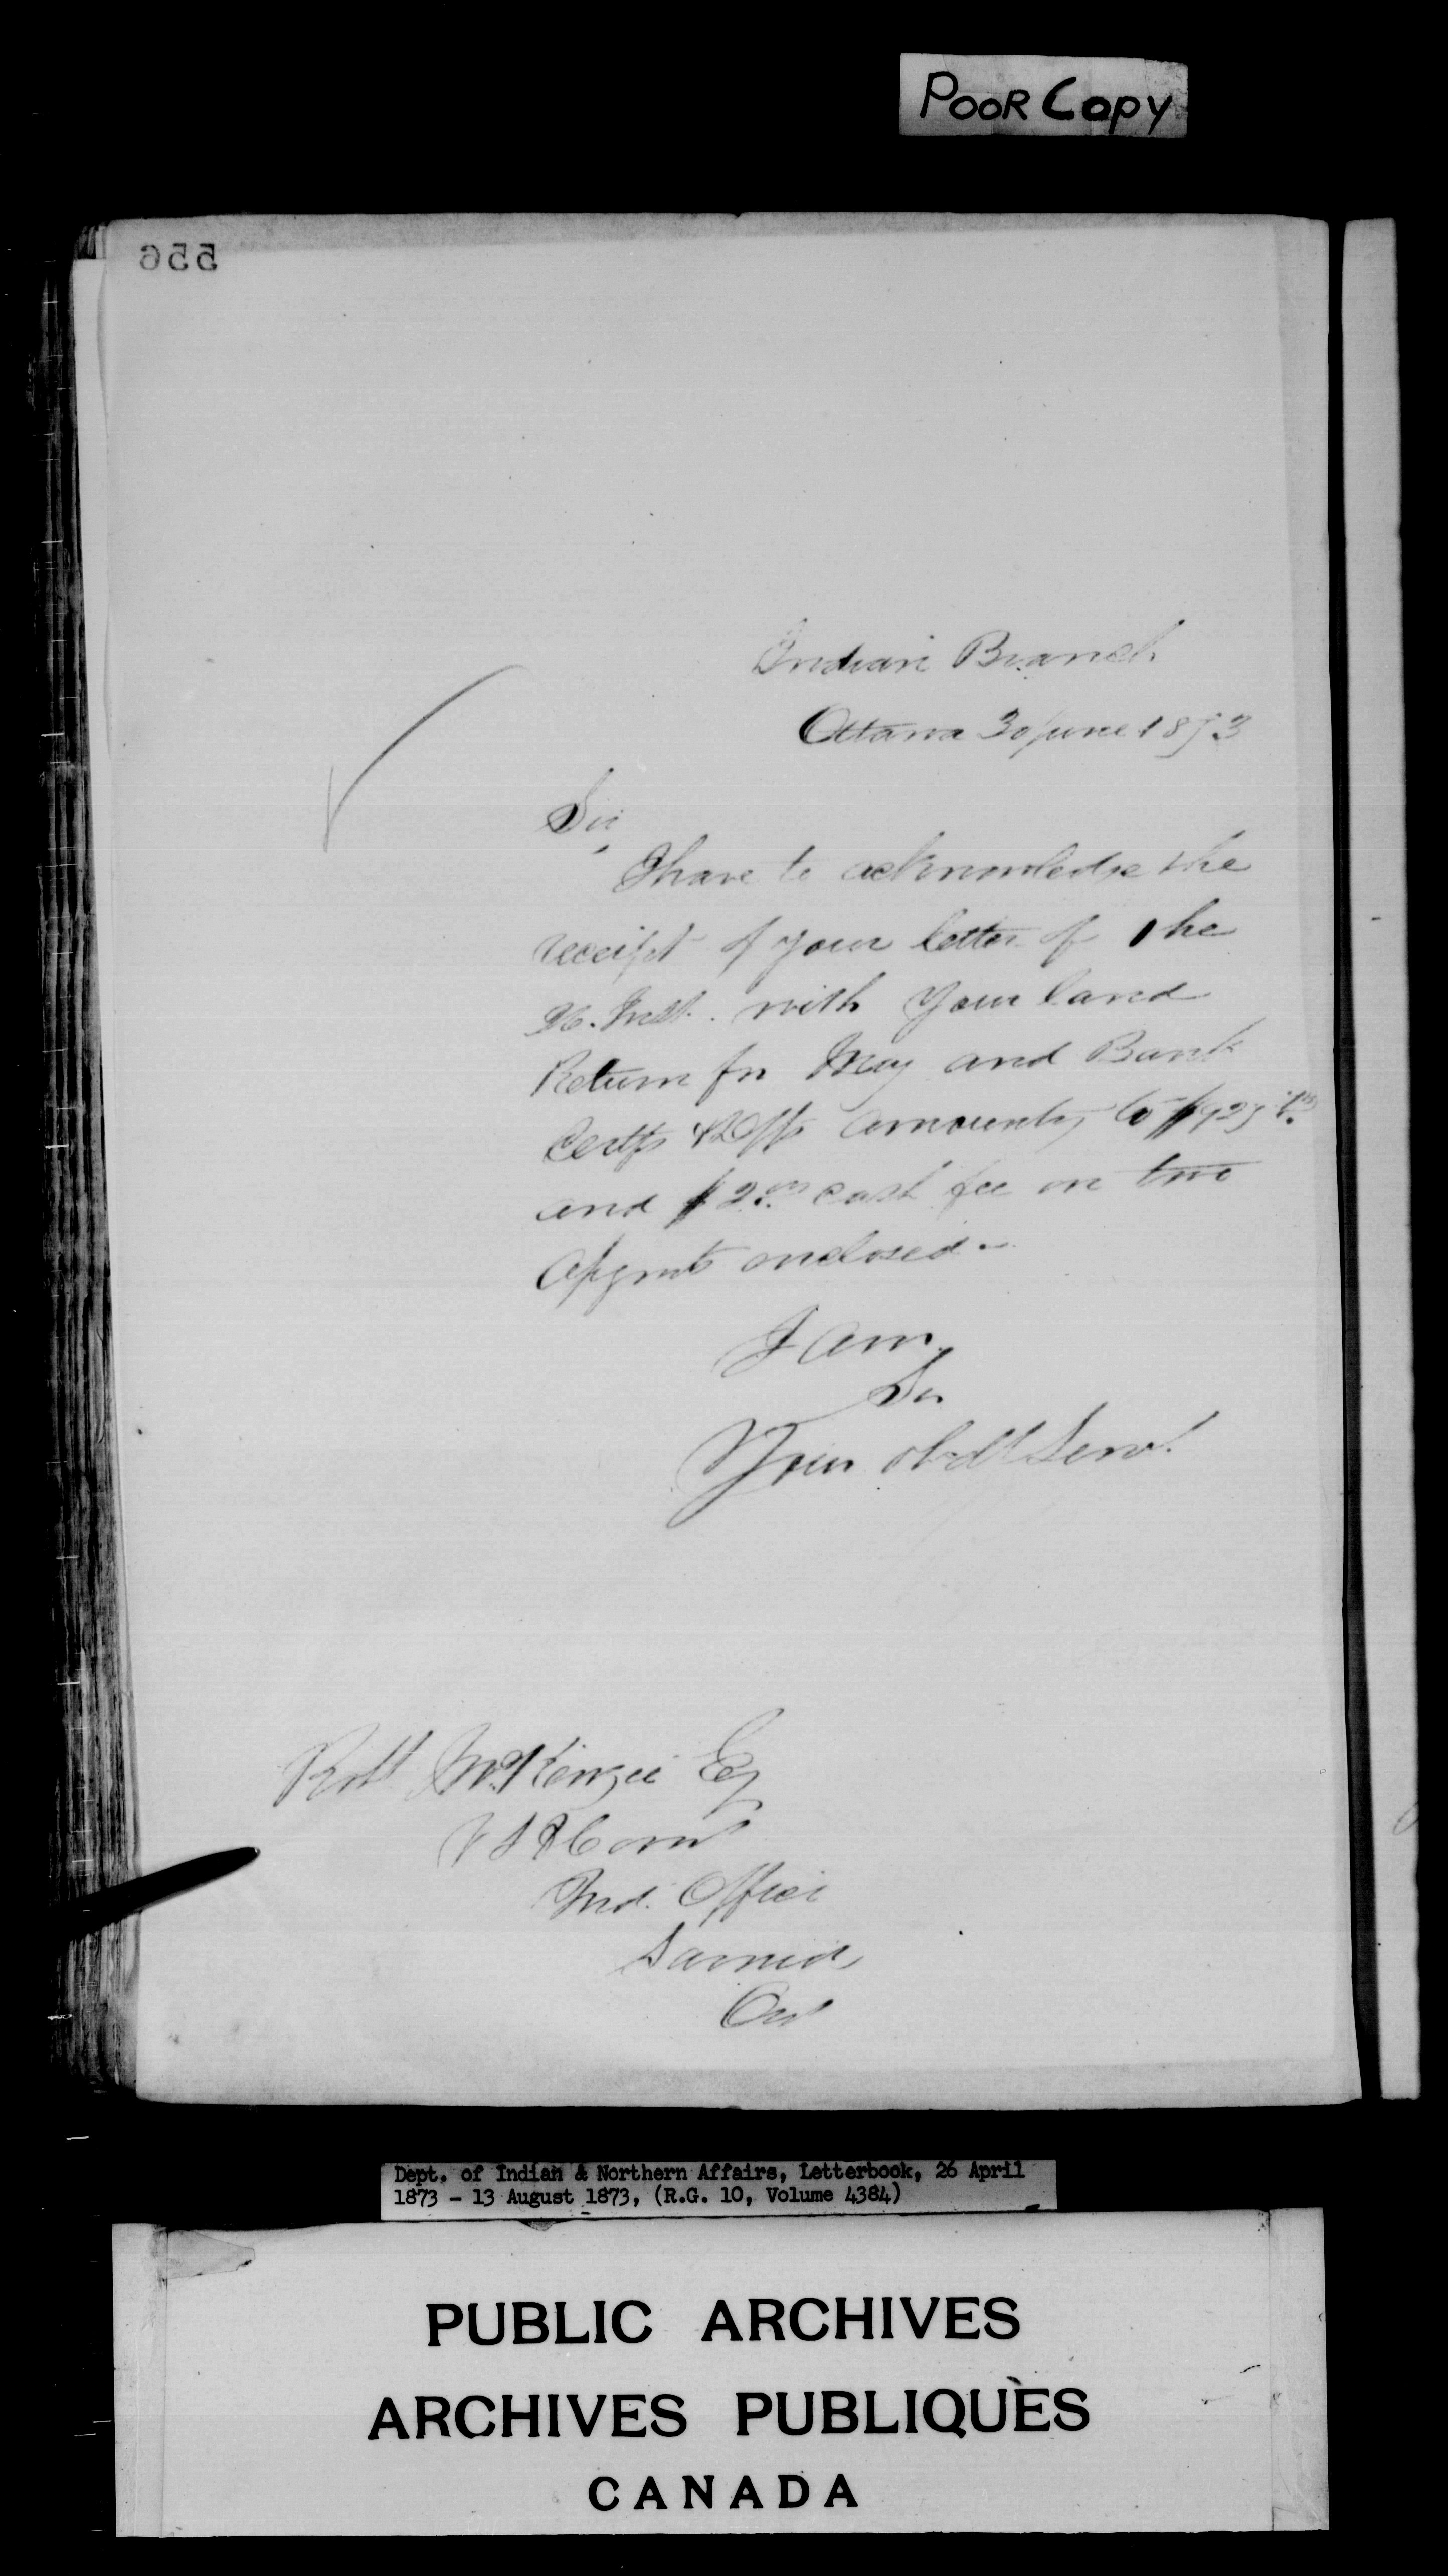 POOR COPY
556
Indian Branch
Ottawa 30 June 1873
Sir,
I have to acknowledge the
receipt of your letter of the
26. Inst. with your land
Return for May and Bank
Certfs amounty to
and $2.00 cash fee on two
enclosed.
I am
Sir
Your obdt Servt
Robt McKenzie Esq
Ind. Office
Sarnia
Ont
Dept. of Indian & Northern Affairs, Letterbook, 26 April
1873 - 13 August 1873, (R.G. 10, Volume 4384)
PUBLIC ARCHIVES
ARCHIVES PUBLIQUES
CANADA